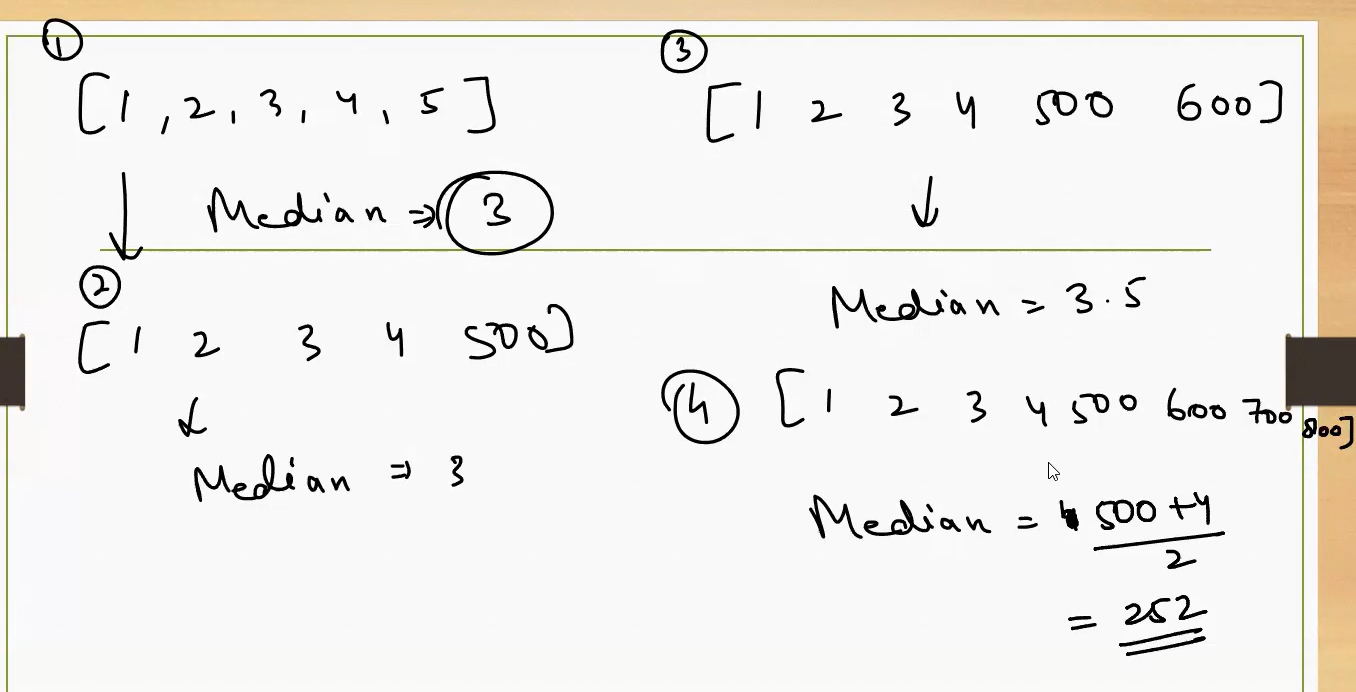 ①
[1, 2, 3, 4, 5]
↓ Median ⇒ 3
②
[1 2 3 4 500]
↙
Median ⇒ 3
③
[1 2 3 4 500 600]
↓
Median = 3.5
④ [1 2 3 4 500 600 700 800]
Median = 500 + 4
2
= 252